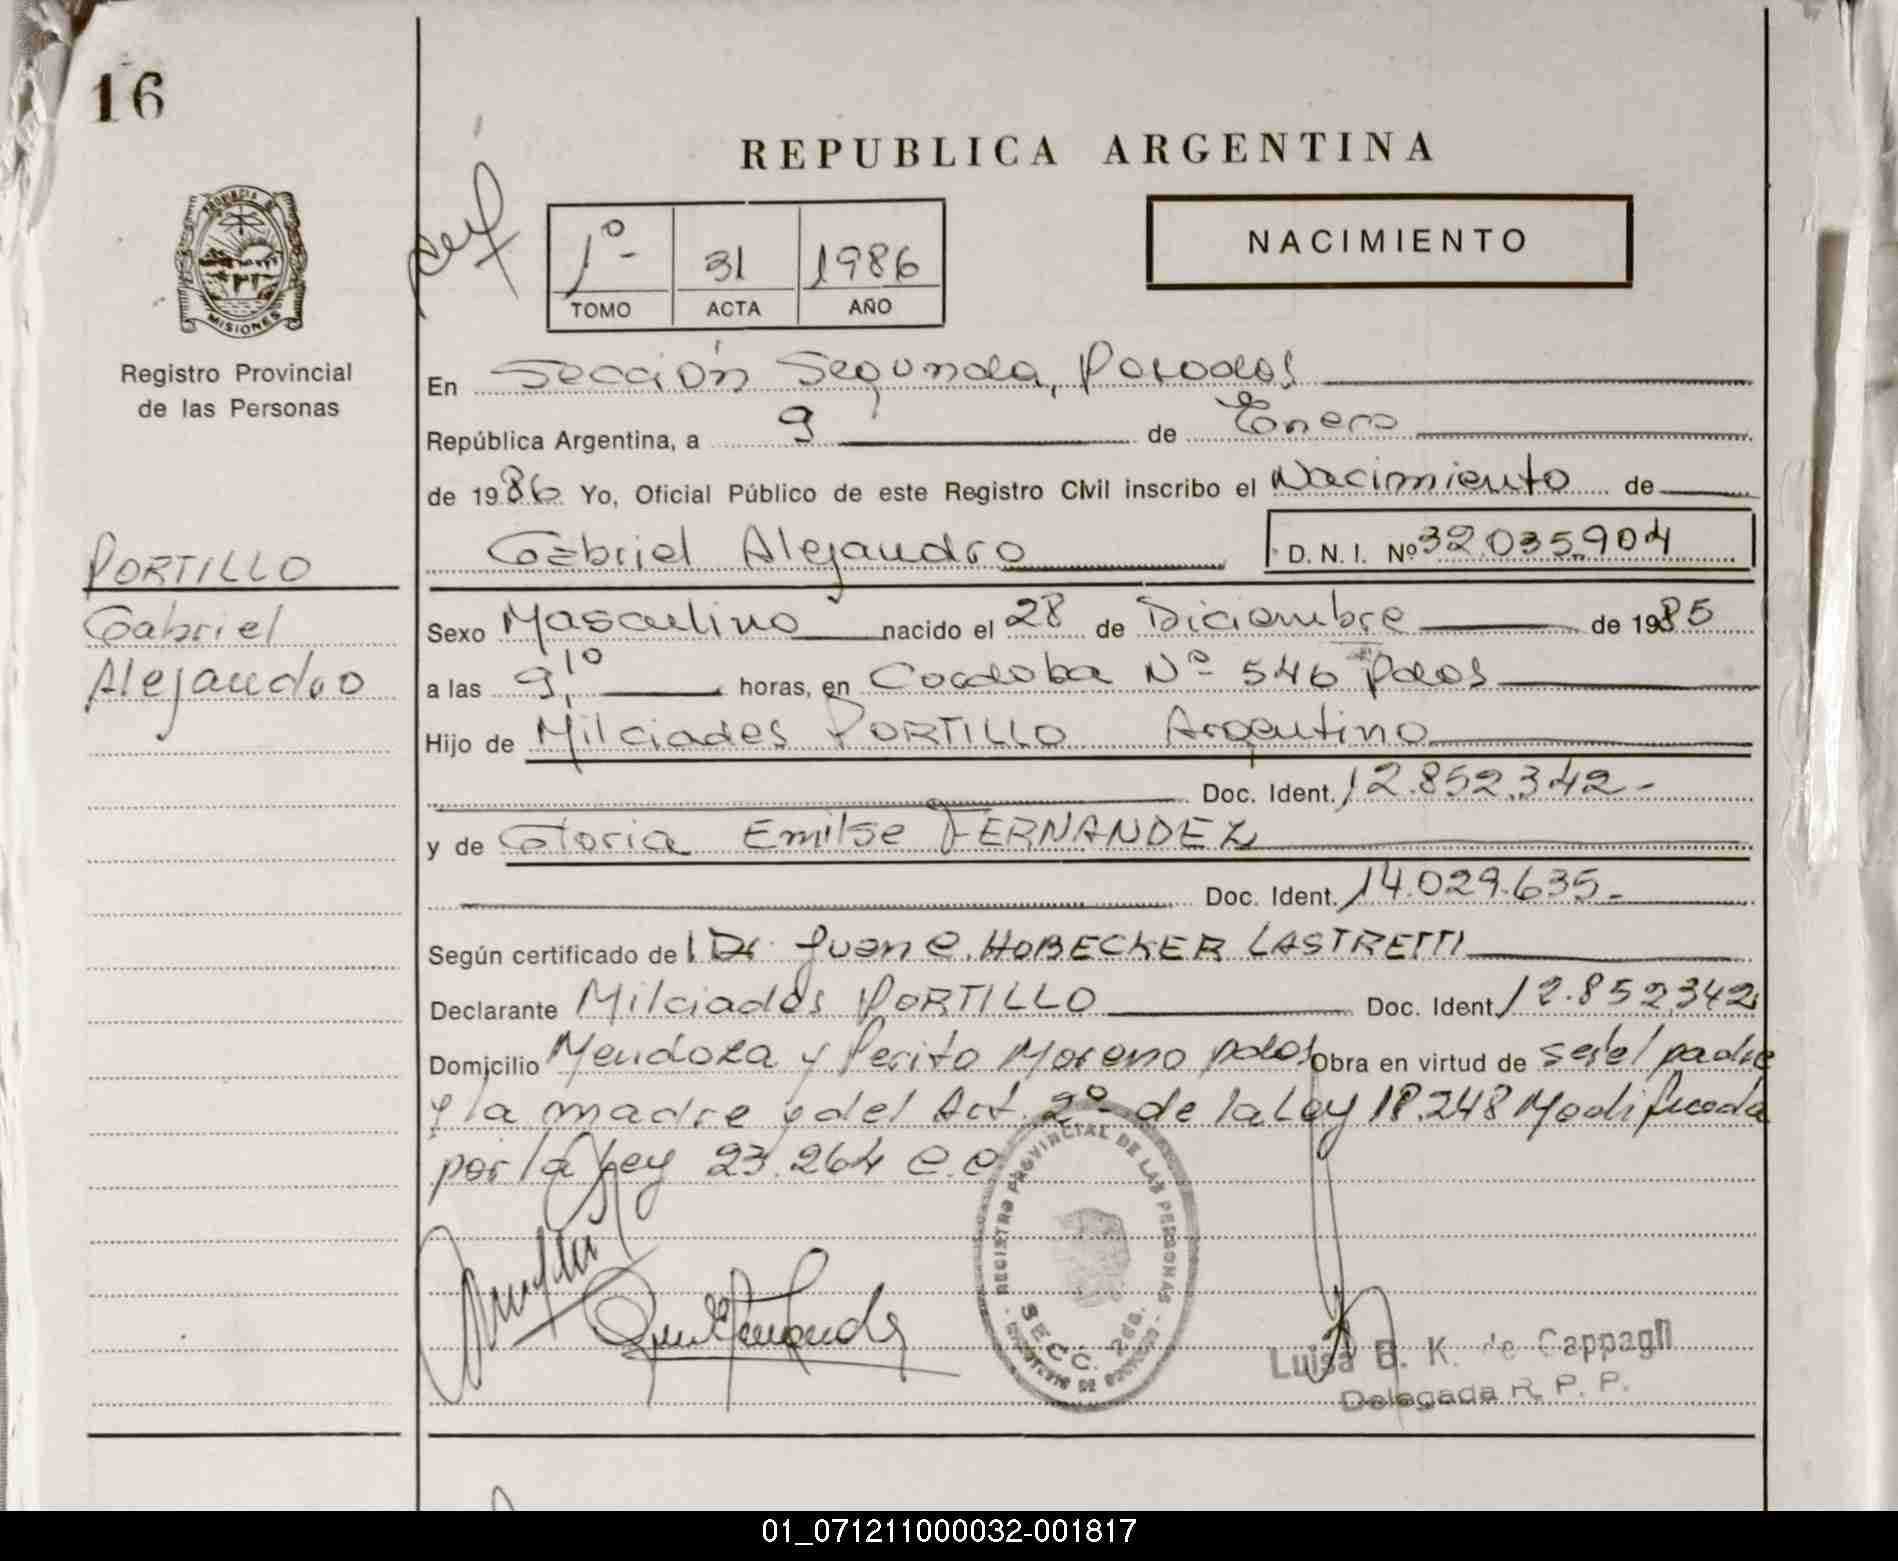 16
REPUBLICA ARGENTINA
PROVINCIA DE
MISIONES
Registro Provincial
de las Personas
1º- 31 1986
TOMO ACTA AÑO
NACIMIENTO
En Sección Segunda, Posadas
República Argentina, a 9 de Enero
de 1986 Yo, Oficial Público de este Registro Civil inscribo el Nacimiento de
Gabriel Alejandro D.N.I. Nº 32.035.904
PORTILLO
Gabriel
Alejandro
Sexo Masculino nacido el 28 de Diciembre de 1985
a las 9,10 horas, en Cordoba Nº 546 Pdas
Hijo de Milciades PORTILLO Argentino
Doc. Ident. 12.852.342-
y de Gloria Emilse FERNANDEZ
Doc. Ident. 14.029.635-
Según certificado de Dr. Juan C. HOBECKER LASTRETTI
Declarante Milciades PORTILLO Doc. Ident. 12.852.342
Domicilio Mendoza y Perito Moreno Pdas Obra en virtud de ser el padre
y la madre y del Art. 2º- de la Ley 18.248 Modificada
por la Ley 23.264
REGISTRO PROVINCIAL DE LAS PERSONAS
SECC. 2da.
Luisa B. K. de Cappagli
Delegada R. P. P.
01_071211000032-001817